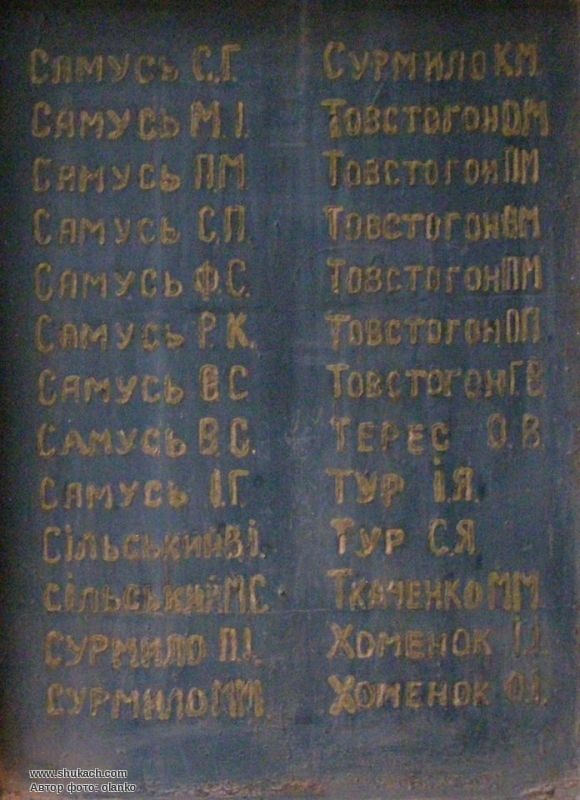 Самусь С.Г.
Самусь М.І.
Самусь П.М.
Самусь С.П.
Самусь Ф.С.
Самусь Р.К.
Самусь В С
Самусь В.С.
Самусь І.Г.
Сільський В.І.
Сільський М С
Сурмило П.І.
Сурмило М М
Сурмило К.М.
Товстогон О.М
Товстогон П М
Товстогон В М
Товстогон П М
Товстогон О П
Товстогон Г.В
Терес О.В
Тур І.Я.
Тур С.Я
Ткаченко М М.
Хоменок І.І.
Хоменок О.І.
www.shukach.com
Автор фото: olanko